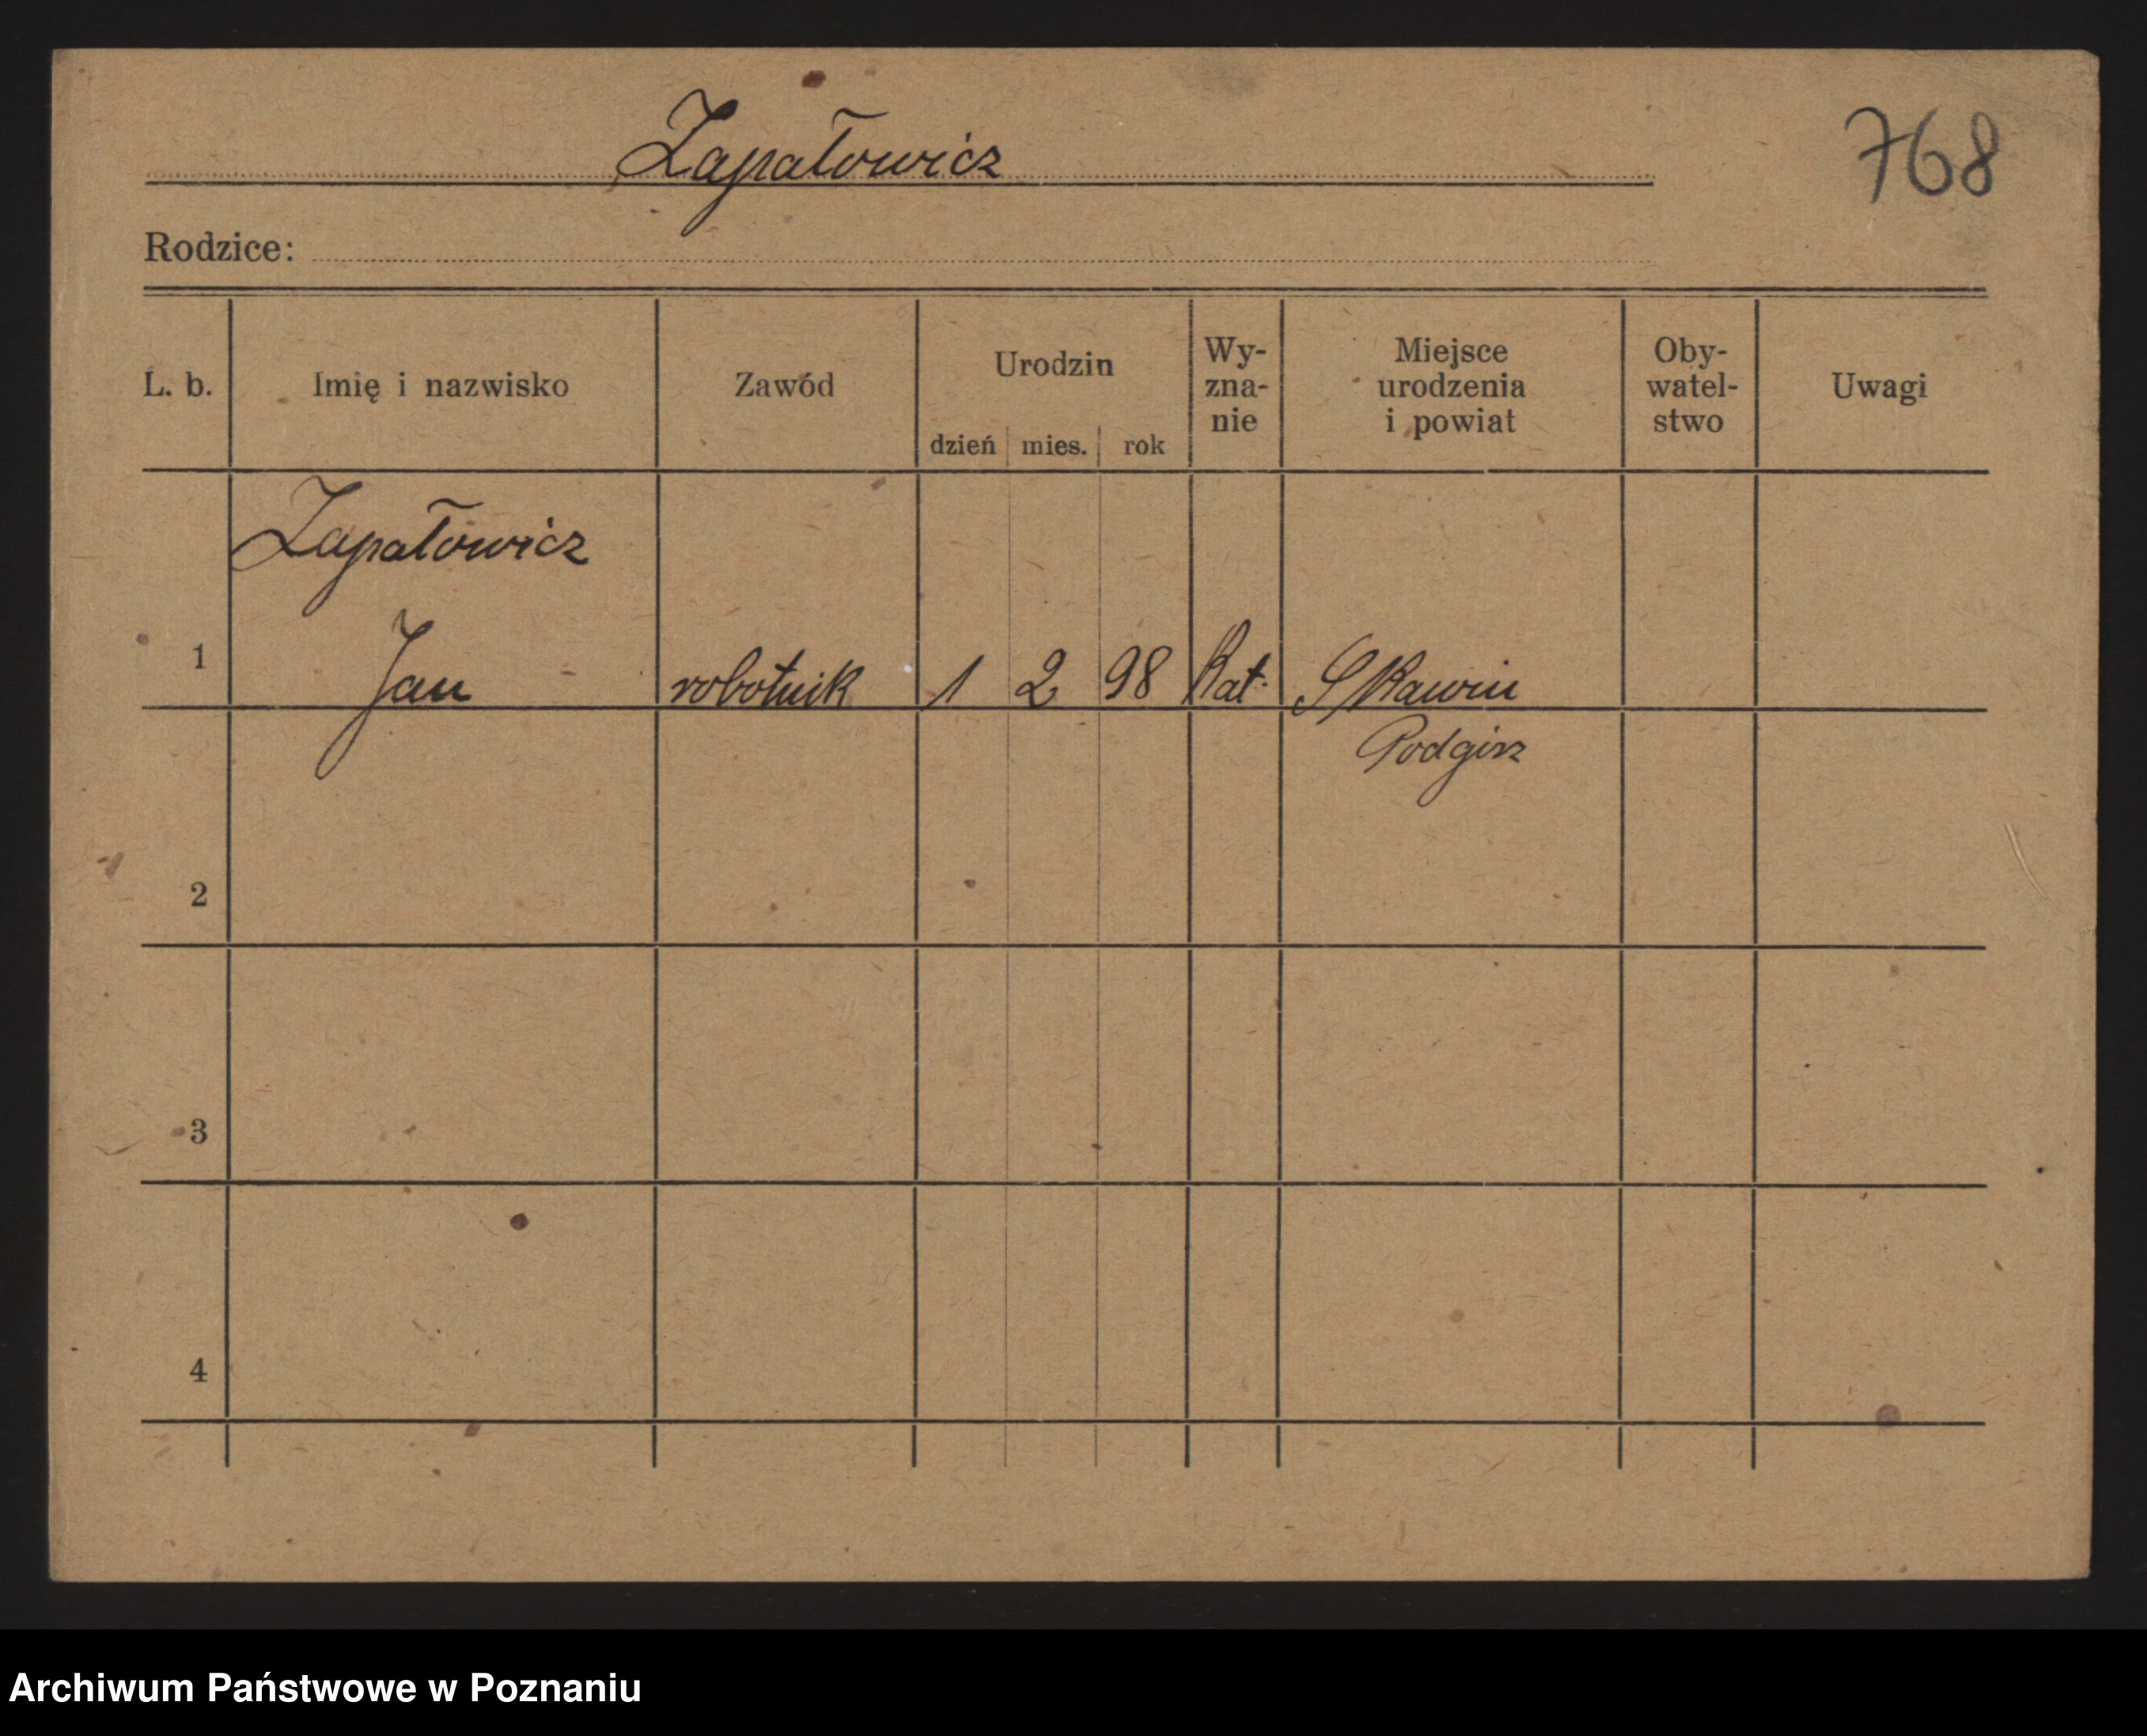 Zapałowicz
768
Rodzice:
L. b. Imię i nazwisko Zawód Urodzin dzień mies. rok Wy-zna-nie Miejsce urodzenia i powiat Oby-watel-stwo Uwagi
Zapałowicz
1 Jan robotnik 1 2 98 Kat. Skawin
Podgórz
2
3
4
Archiwum Państwowe w Poznaniu